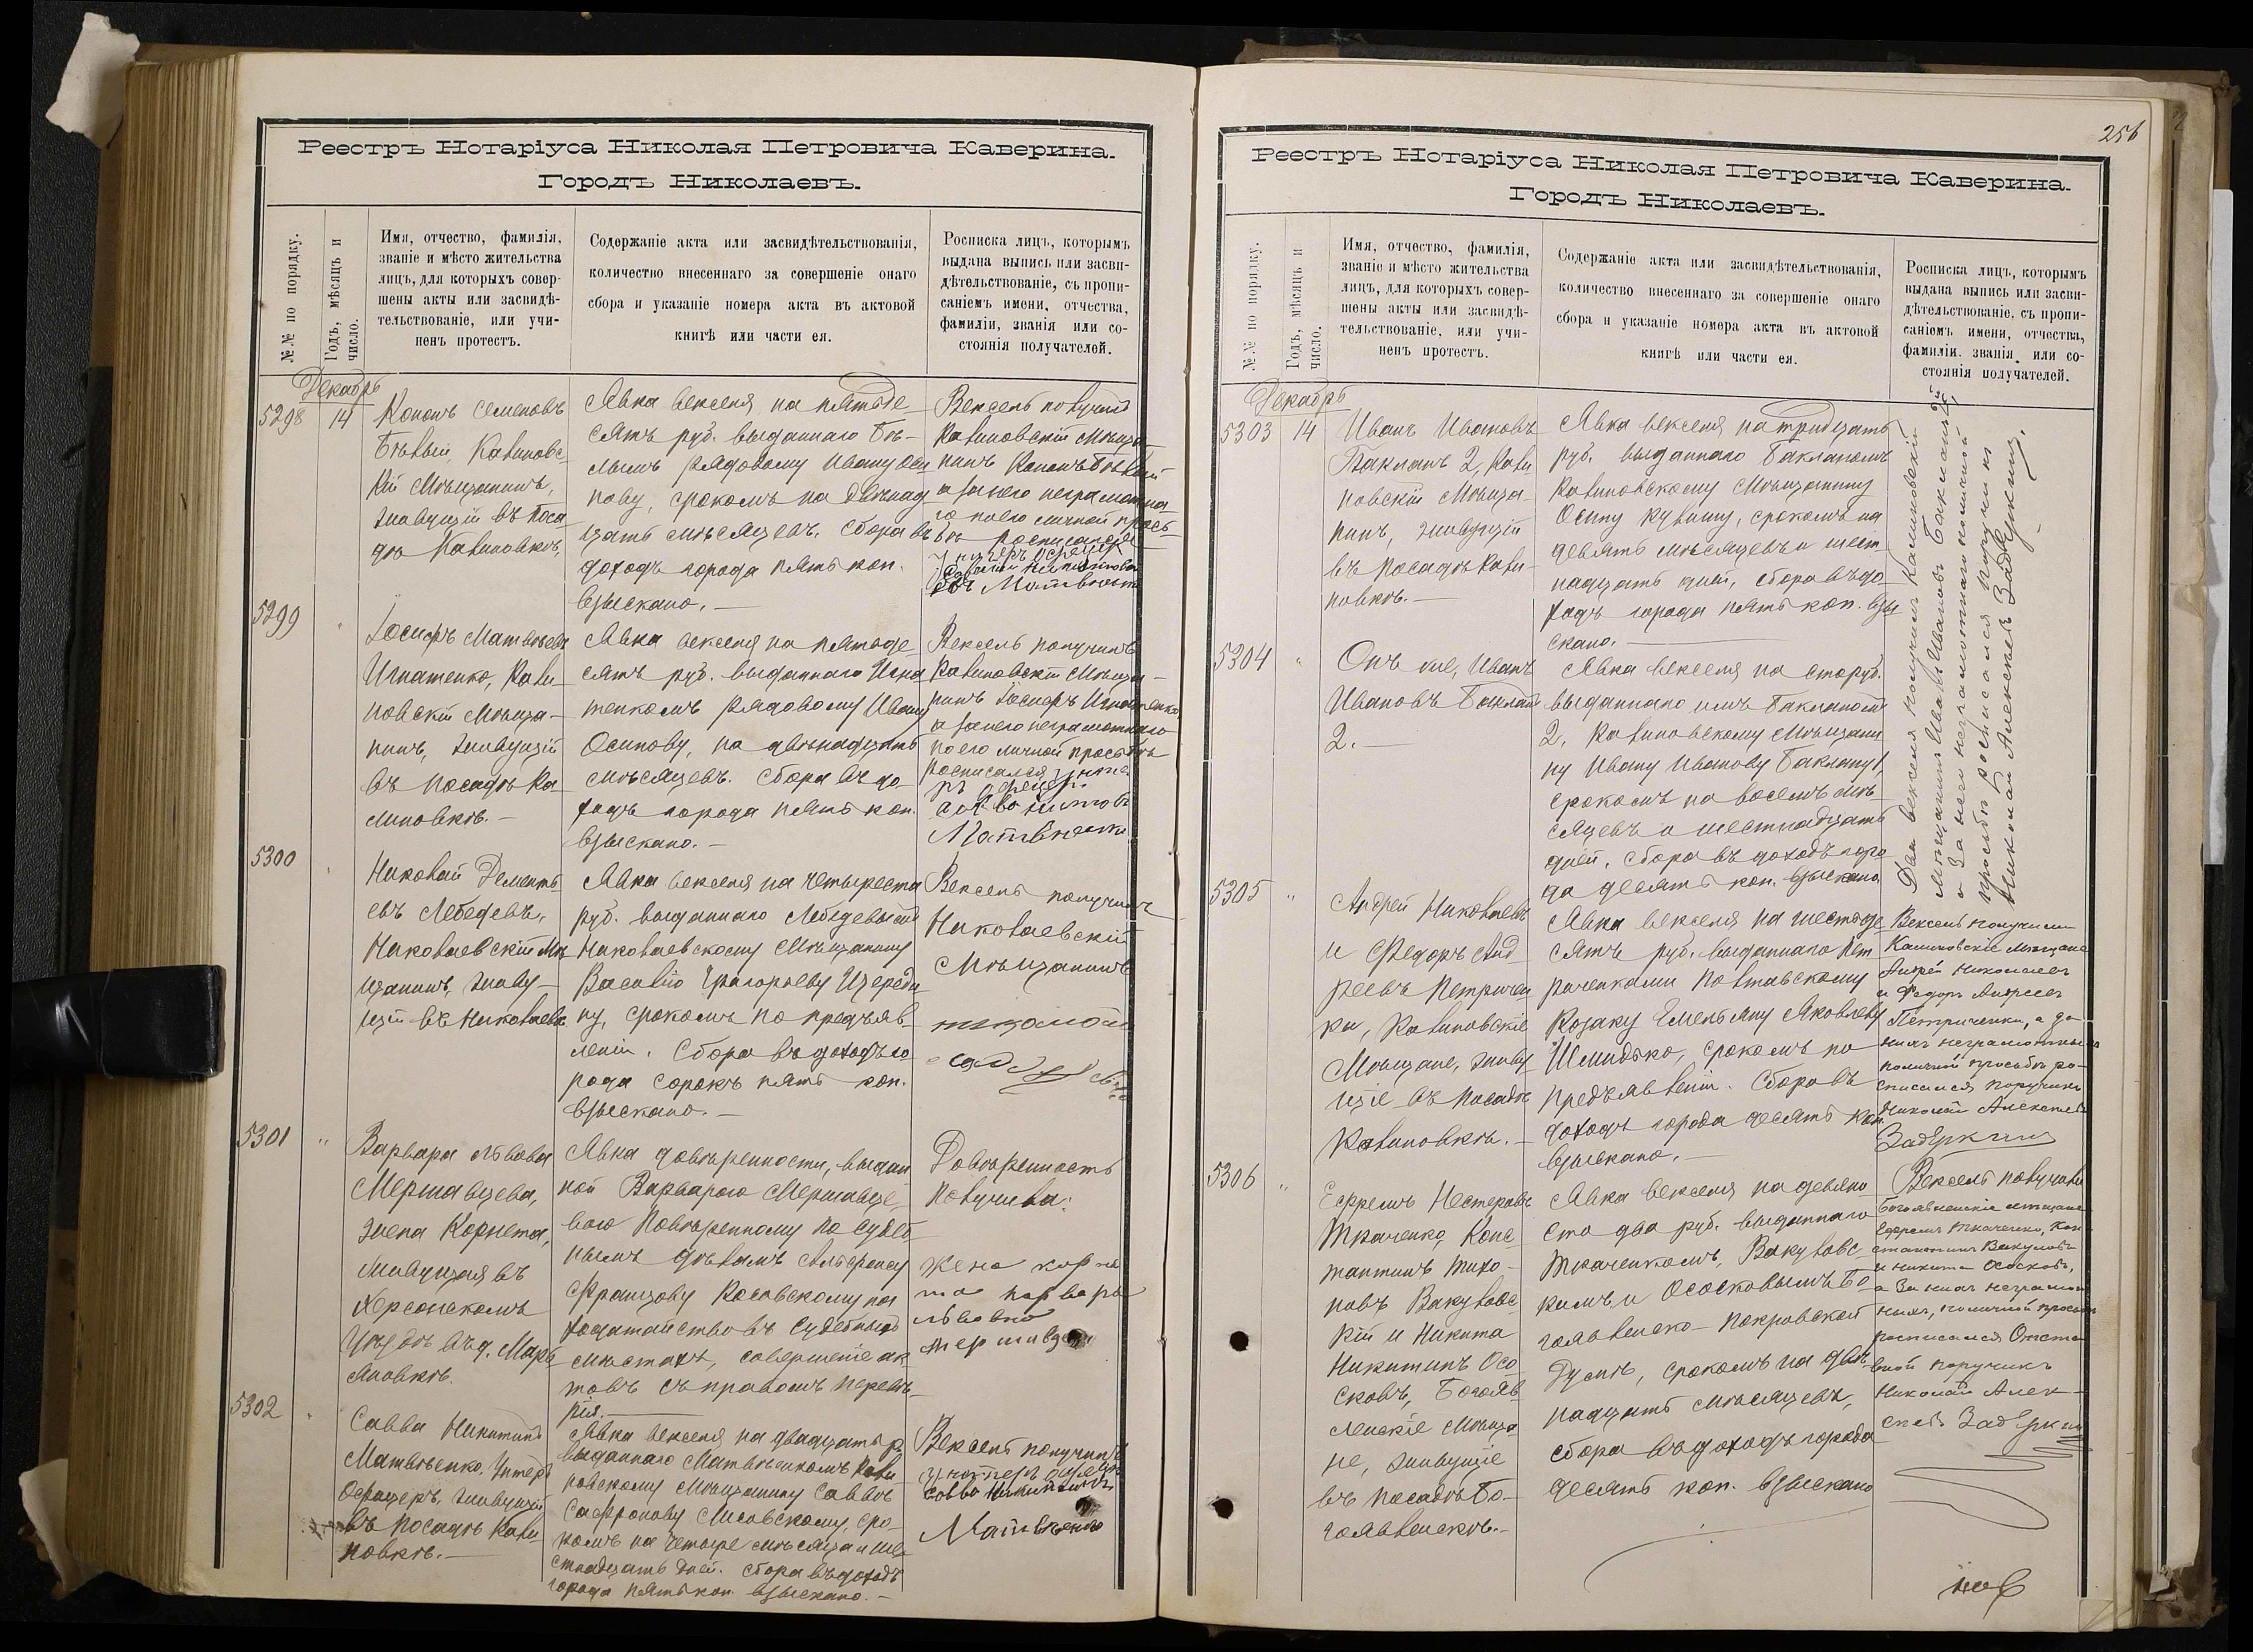 Реестръ Нотаріуса Николая Петровича Каверина.
Городъ Николаевъ.
№№ по порядку.
Годъ, мѣсяцъ и
число.
Имя, отчество, фамилія,
званіе и мѣсто жительства
лицъ, для которыхъ совер-
шены акты или засвидѣ-
тельствованіе, или учи-
ненъ протестъ.
Содержаніе акта или засвидѣтельствованія,
количество внесеннаго за совершеніе онаго
сбора и указаніе номера акта въ актовой
книгѣ или части ея.
Росписка лицъ, которымъ
выдана выпись или засви-
дѣтельствованіе, съ пропи-
саніемъ имени, отчества,
фамиліи, званія или со-
стоянія получателей.
Декабрь
5298
14
Кононъ Семеновъ
Бѣлый, Калиновс-
кій Мѣщанинъ,
живущій въ Поса-
дѣ Калиновкѣ,
Явка векселя на пятьде
сятъ руб. выданнаго Бѣ-
лымъ рядовому Ивану Оси
пову, срокомъ на двѣнад
цать мѣсяцевъ. Сбора въ
доходъ города пять коп.
взыскано. —
Вексель получилъ
Калиновскій Мѣща-
нинъ Кононъ Бѣлый
а за него неграмотна-
го по его личной прось-
бѣ росписался
Унтеръ Офицеръ
Матвѣенко
5299
"
Іосифъ Матвѣевъ
Игнатенко, Кали
новскій Мѣща-
нинъ, живущій
въ посадѣ Ка-
линовкѣ. —
Явка векселя на пятьде
сятъ руб. выданнаго Игна
тенкомъ рядовому Ивану
Осипову, на двѣнадцать
мѣсяцевъ. Сбора въ до-
ходъ города пять коп.
взыскано. —
Вексель получилъ
Калиновскій Мѣща-
нинъ Іосифъ Игнатенко
а за него неграмотнаго
по его личной просьбѣ
росписался унте
ръ офицеръ
Матвѣенко
5300
"
Николай Дементь
евъ Лебедевъ,
Николаевскій Мѣ
щанинъ, живу-
щій въ Николаевѣ
Явка векселя на четыреста
руб. выданнаго Лебедевымъ
Николаевскому Мѣщанину
Василію Григорьеву Щереди
ну, срокомъ по предъяв
леніи. Сбора въ доходъ го
рода сорокъ пять коп.
взыскано. —
Вексель получилъ
Николаевскій
Мѣщанинъ
5301
"
Варвара Львовна
Мершавцева,
жена Корнета,
живущая въ
Херсонскомъ
Уѣздѣ въ д. Марь
яновкѣ.
Явка довѣренности, выдан
ной Варварою Мершавце
вою Повѣренному по судеб
нымъ дѣламъ Альфонсу
Францову Косовскому на
ходатайство въ судебныхъ
мѣстахъ, совершеніе ак
товъ съ правомъ передовѣ-
рія. —
Довѣренность
Получила:
жена корне
та варвара
львовна
5302
"
Савва Никитинъ
Матвѣенко, Унтеръ
Офицеръ, живущій
въ посадѣ Кали
новкѣ. —
Явка векселя на двадцать р.
выданнаго Матвѣенкомъ Кали
новскому Мѣщанину Саввѣ
Сафронову Лисовскому, сро-
комъ на четыре мѣсяца и ше
стнадцать дней. Сбора въ доходъ
города пять коп. взыскано. —
Вексель получилъ
унтеръ офицеръ
Савва Никитинъ
Матвѣенко
256
Реестръ Нотаріуса Николая Петровича Каверина.
Городъ Николаевъ.
№№ по порядку.
Годъ, мѣсяцъ и
число.
Имя, отчество, фамилія,
званіе и мѣсто жительства
лицъ, для которыхъ совер-
шены акты или засвидѣ-
тельствованіе, или учи-
ненъ протестъ.
Содержаніе акта или засвидѣтельствованія,
количество внесеннаго за совершеніе онаго
сбора и указаніе номера акта въ актовой
книгѣ или части ея.
Росписка лицъ, которымъ
выдана выпись или засви-
дѣтельствованіе, съ пропи-
саніемъ имени, отчества,
фамиліи, званія или со-
стоянія получателей.
Декабрь
5303
14
Иванъ Ивановъ
Бакланъ 2, Кали
новскій Мѣща-
нинъ, живущій
въ посадѣ Кали-
новкѣ. —
Явка векселя на тридцать
руб. выданнаго Бакланомъ
Калиновскому Мѣщанину
Осипу Кулишу, срокомъ на
девять мѣсяцевъ и шест
надцать дней, сбора въ до-
ходъ города пять коп. взы
скано. —
5304
"
Онъ же, Иванъ
Ивановъ Бакланъ
2. —
Явка векселя на сто руб.
выданнаго имъ Бакланомъ
2, Калиновскому Мѣщани
ну Ивану Иванову Баклану 1,
срокомъ на восемь мѣ-
сяцевъ и шестнадцать
дней. Сбора въ доходъ горо
да десять коп. взыскано.
Два векселя получилъ Калиновскій
мѣщанинъ Иванъ Ивановъ Бакланъ 2й,
а за него неграмотнаго по личной
просьбѣ росписался поручикъ
Николай Алексѣевъ Задёркинъ.
5305
"
Андрей Николаевъ
и Федоръ Анд
реевъ Петричен
ки, Калиновскіе
Мѣщане, живу
щіе въ посадѣ
Калиновкѣ. —
Явка векселя на шестьде
сятъ руб. выданнаго Пет
риченками Полтавскому
Козаку Емельяну Яковлеву
Шмидько, срокомъ по
предъявленіи. Сбора въ
доходъ города десять коп.
взыскано. —
Вексель получили
Калиновскіе мѣщане
Андрей Николаевъ
и Федоръ Андреевъ
Петриченки, а за
нихъ неграмотныхъ
по личной просьбѣ ро-
списался поручикъ
Николай Алексѣевъ
Задёркинъ
5306
"
Ефремъ Нестеровъ
Ткаченко, Конс
тантинъ Тихо-
новъ Вакуловс
кій и Никита
Никитинъ Осо
сковъ, Богояв
ленскіе Мѣща
не, живущіе
въ посадѣ Бо-
гоявленскѣ. —
Явка векселя на девяно
сто два руб. выданнаго
Ткаченкомъ, Вакуловс
кимъ и Ососковымъ Бо-
гоявленско-Покровской
Думѣ, срокомъ на двѣ
надцать мѣсяцевъ,
сбора въ доходъ города
десять коп. взыскано
Вексель получили
Богоявленскіе мѣщане
Ефремъ Ткаченко, Кон
стантинъ Вакуловс
и Никита Ососковъ,
а за нихъ неграмот
ныхъ, по личной просьбѣ
росписался Отста
вной поручикъ
Николай Алек-
сѣевъ Задёркинъ